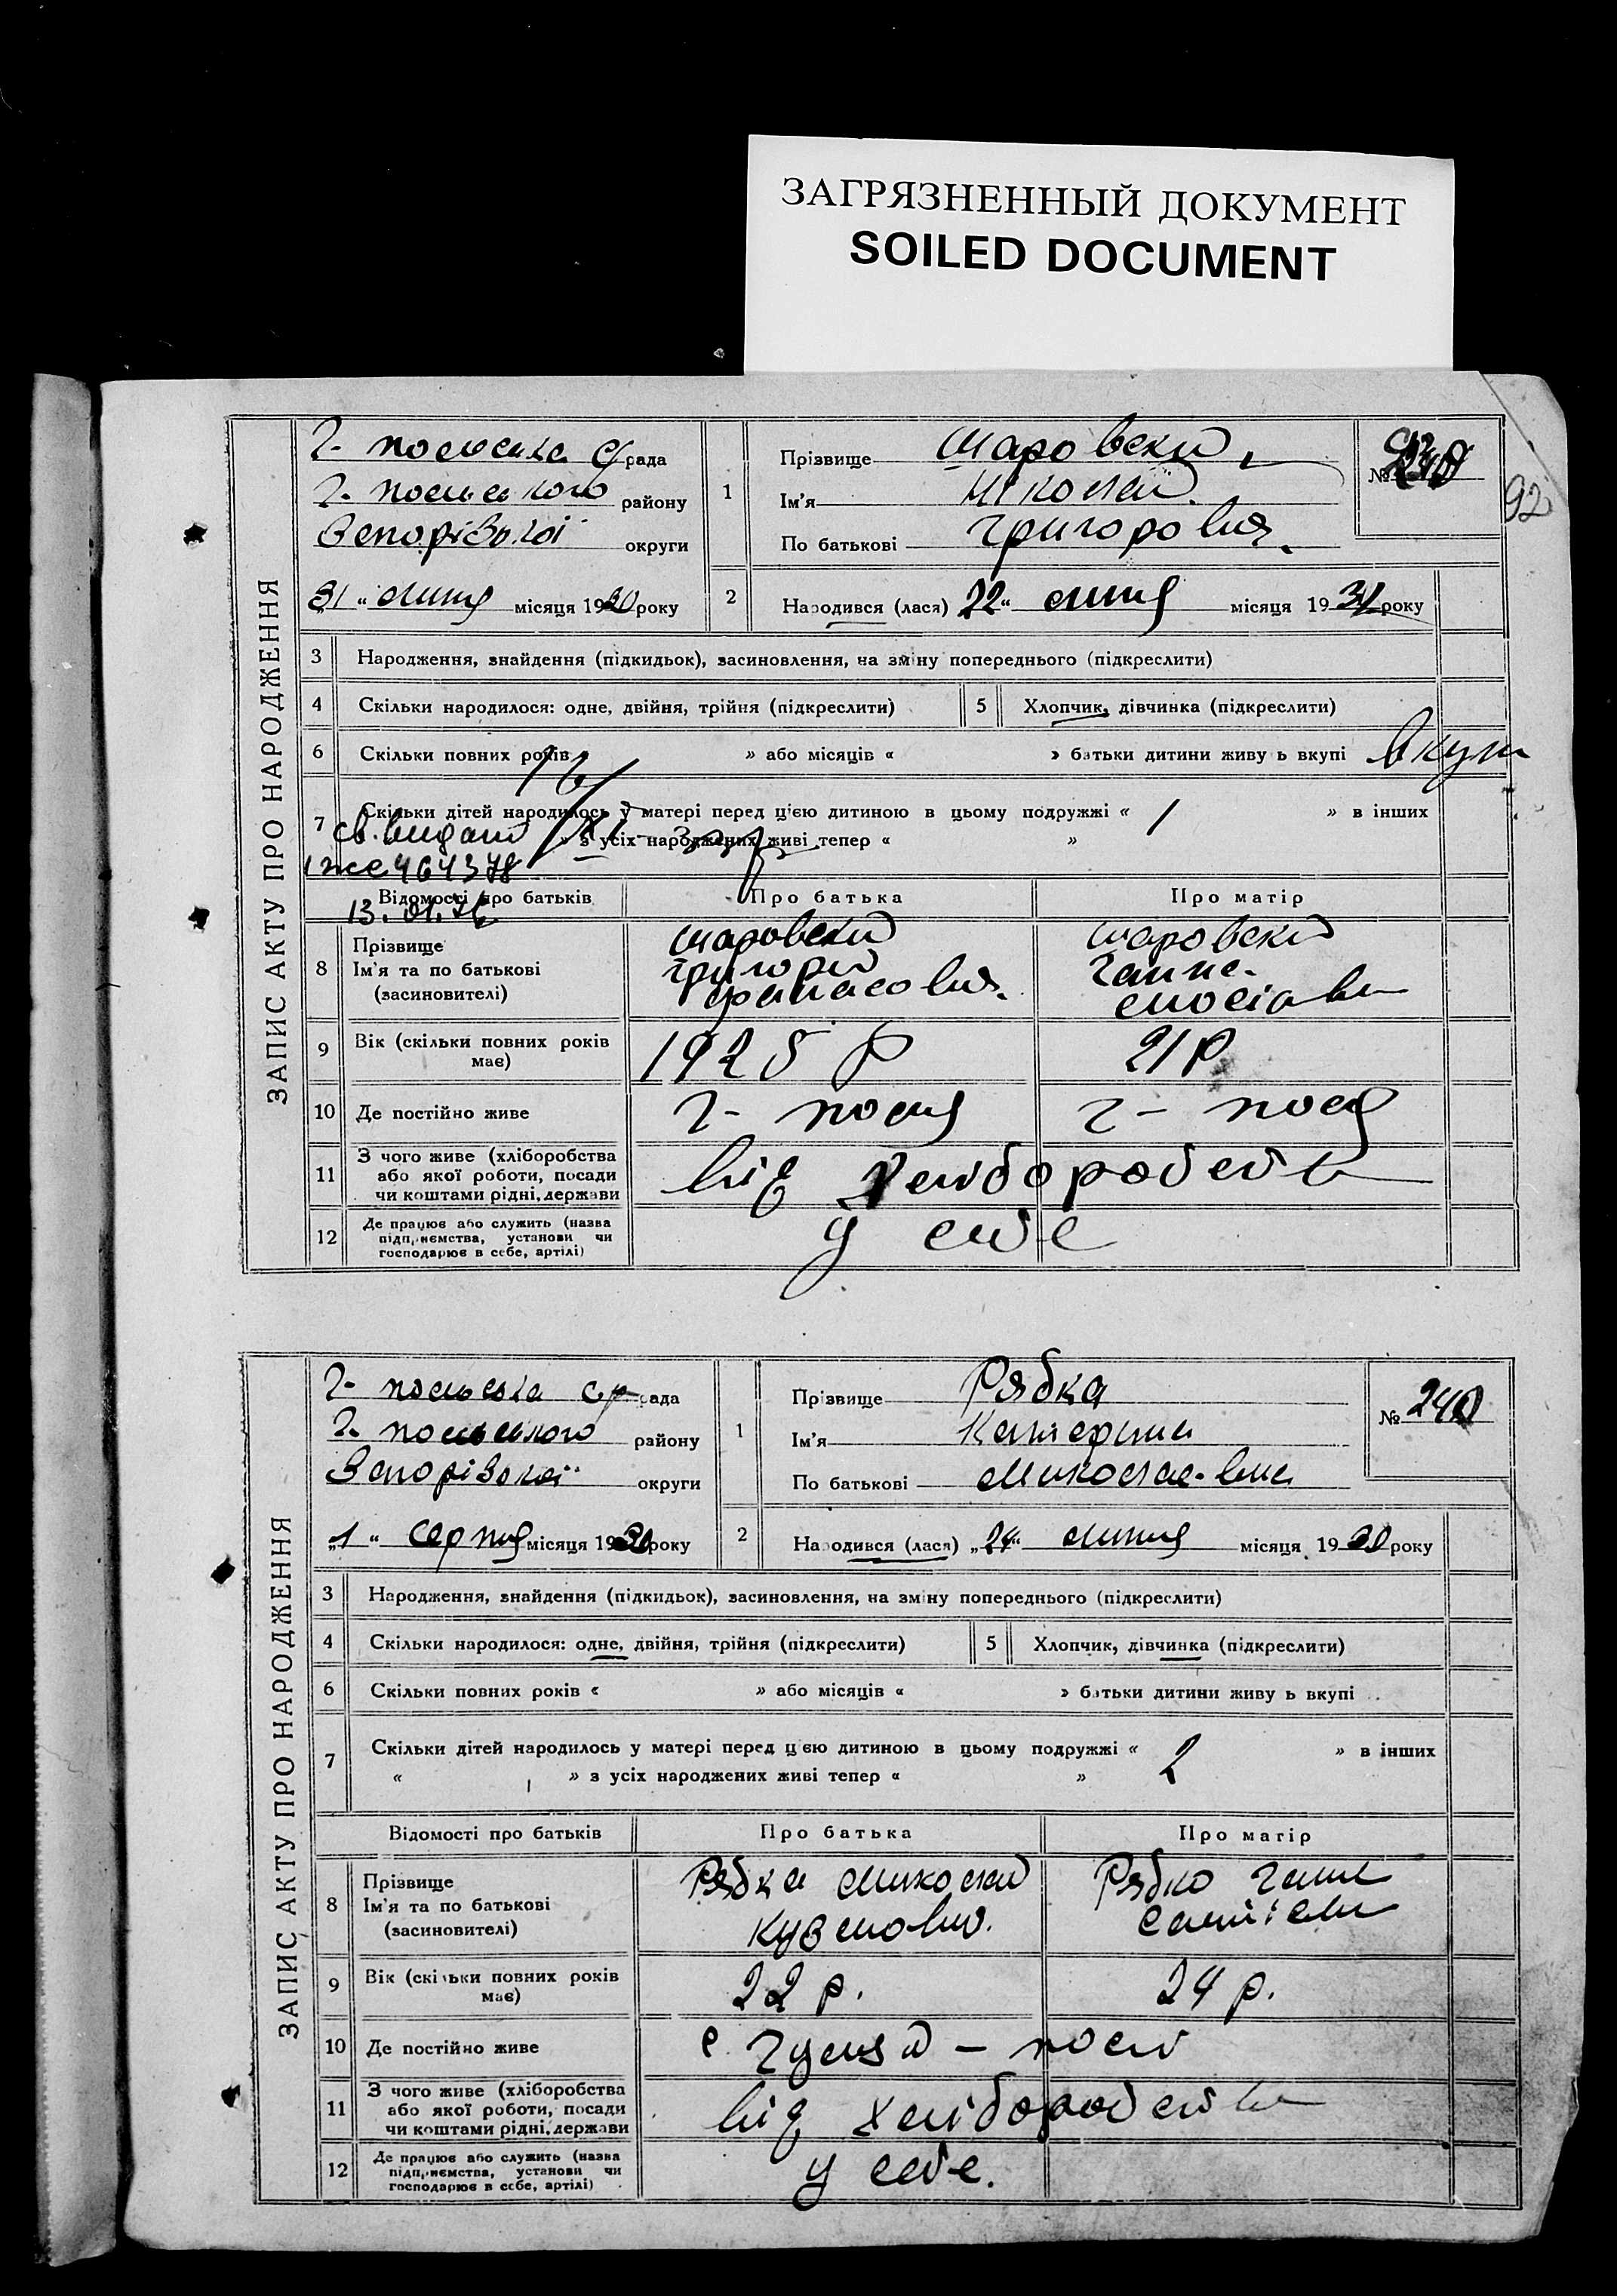 ЗАГРЯЗНЕННЫЙ ДОКУМЕНТ
SOILED DOCUMENT
92
ЗАПИС АКТУ ПРО НАРОДЖЕННЯ
рада
району
округи
31 " липня місяця 1930 року
1
Прізвище Шаровский
Ім'я Миколай
По батькові Григорович
№
2
Народився (лася) 22 " липня місяця 19 року
3 Народження, знайдення (підкидьок), засиновлення, на зміну попереднього (підкреслити)
4 Скільки народилося: одне, двійня, трійня (підкреслити)
5 Хлопчик, дівчинка (підкреслити)
6 Скільки повних років » або місяців « » батьки дитини живу ь вкупі вкупі
7 Скільки дітей народилось у матері перед цією дитиною в цьому подружжі « 1 » в інших
» з усіх народжених живі тепер « »
св. видано
464378
13.01.76
Відомості про батьків Про батька Про матір
8 Прізвище
Ім'я та по батькові
(засиновителі)
Шаровский
Григорий
Шаровска
Ганна
9 Вік (скільки повних років
має)
1925 р
21 р
10 Де постійно живе
Г- поля
Г- поля
11 З чого живе (хліборобства
або якої роботи, посади
чи коштами рідні, держави
від хліборобства
12 Де працює або служить (назва
підприємства, установи чи
господарює в себе, артілі)
у себе
ЗАПИС АКТУ ПРО НАРОДЖЕННЯ
рада
району
округи
„1 " серпня місяця 1930 року
1
Прізвище Рябка
Ім'я Катерина
По батькові Миколаевна
№ 240
2
Народився (лася) „24" липня місяця 1930 року
3 Народження, знайдення (підкидьок), засиновлення, на зміну попереднього (підкреслити)
4 Скільки народилося: одне, двійня, трійня (підкреслити)
5 Хлопчик, дівчинка (підкреслити)
6 Скільки повних років « » або місяців « » батьки дитини живу ь вкупі
7 Скільки дітей народилось у матері перед цією дитиною в цьому подружжі « 2 » в інших
« » з усіх народжених живі тепер « »
Відомості про батьків Про батька Про матір
8 Прізвище
Ім'я та по батькові
(засиновителі)
Рябка Миколай
Кузмович
Рябко Ганна
9 Вік (скільки повних років
має)
22 р.
24 р.
10 Де постійно живе
с. Гуляй - поле
11 З чого живе (хліборобства
або якої роботи, посади
чи коштами рідні, держави
від хліборобства
12 Де працює або служить (назва
підприємства, установи чи
господарює в себе, артілі)
у себе.